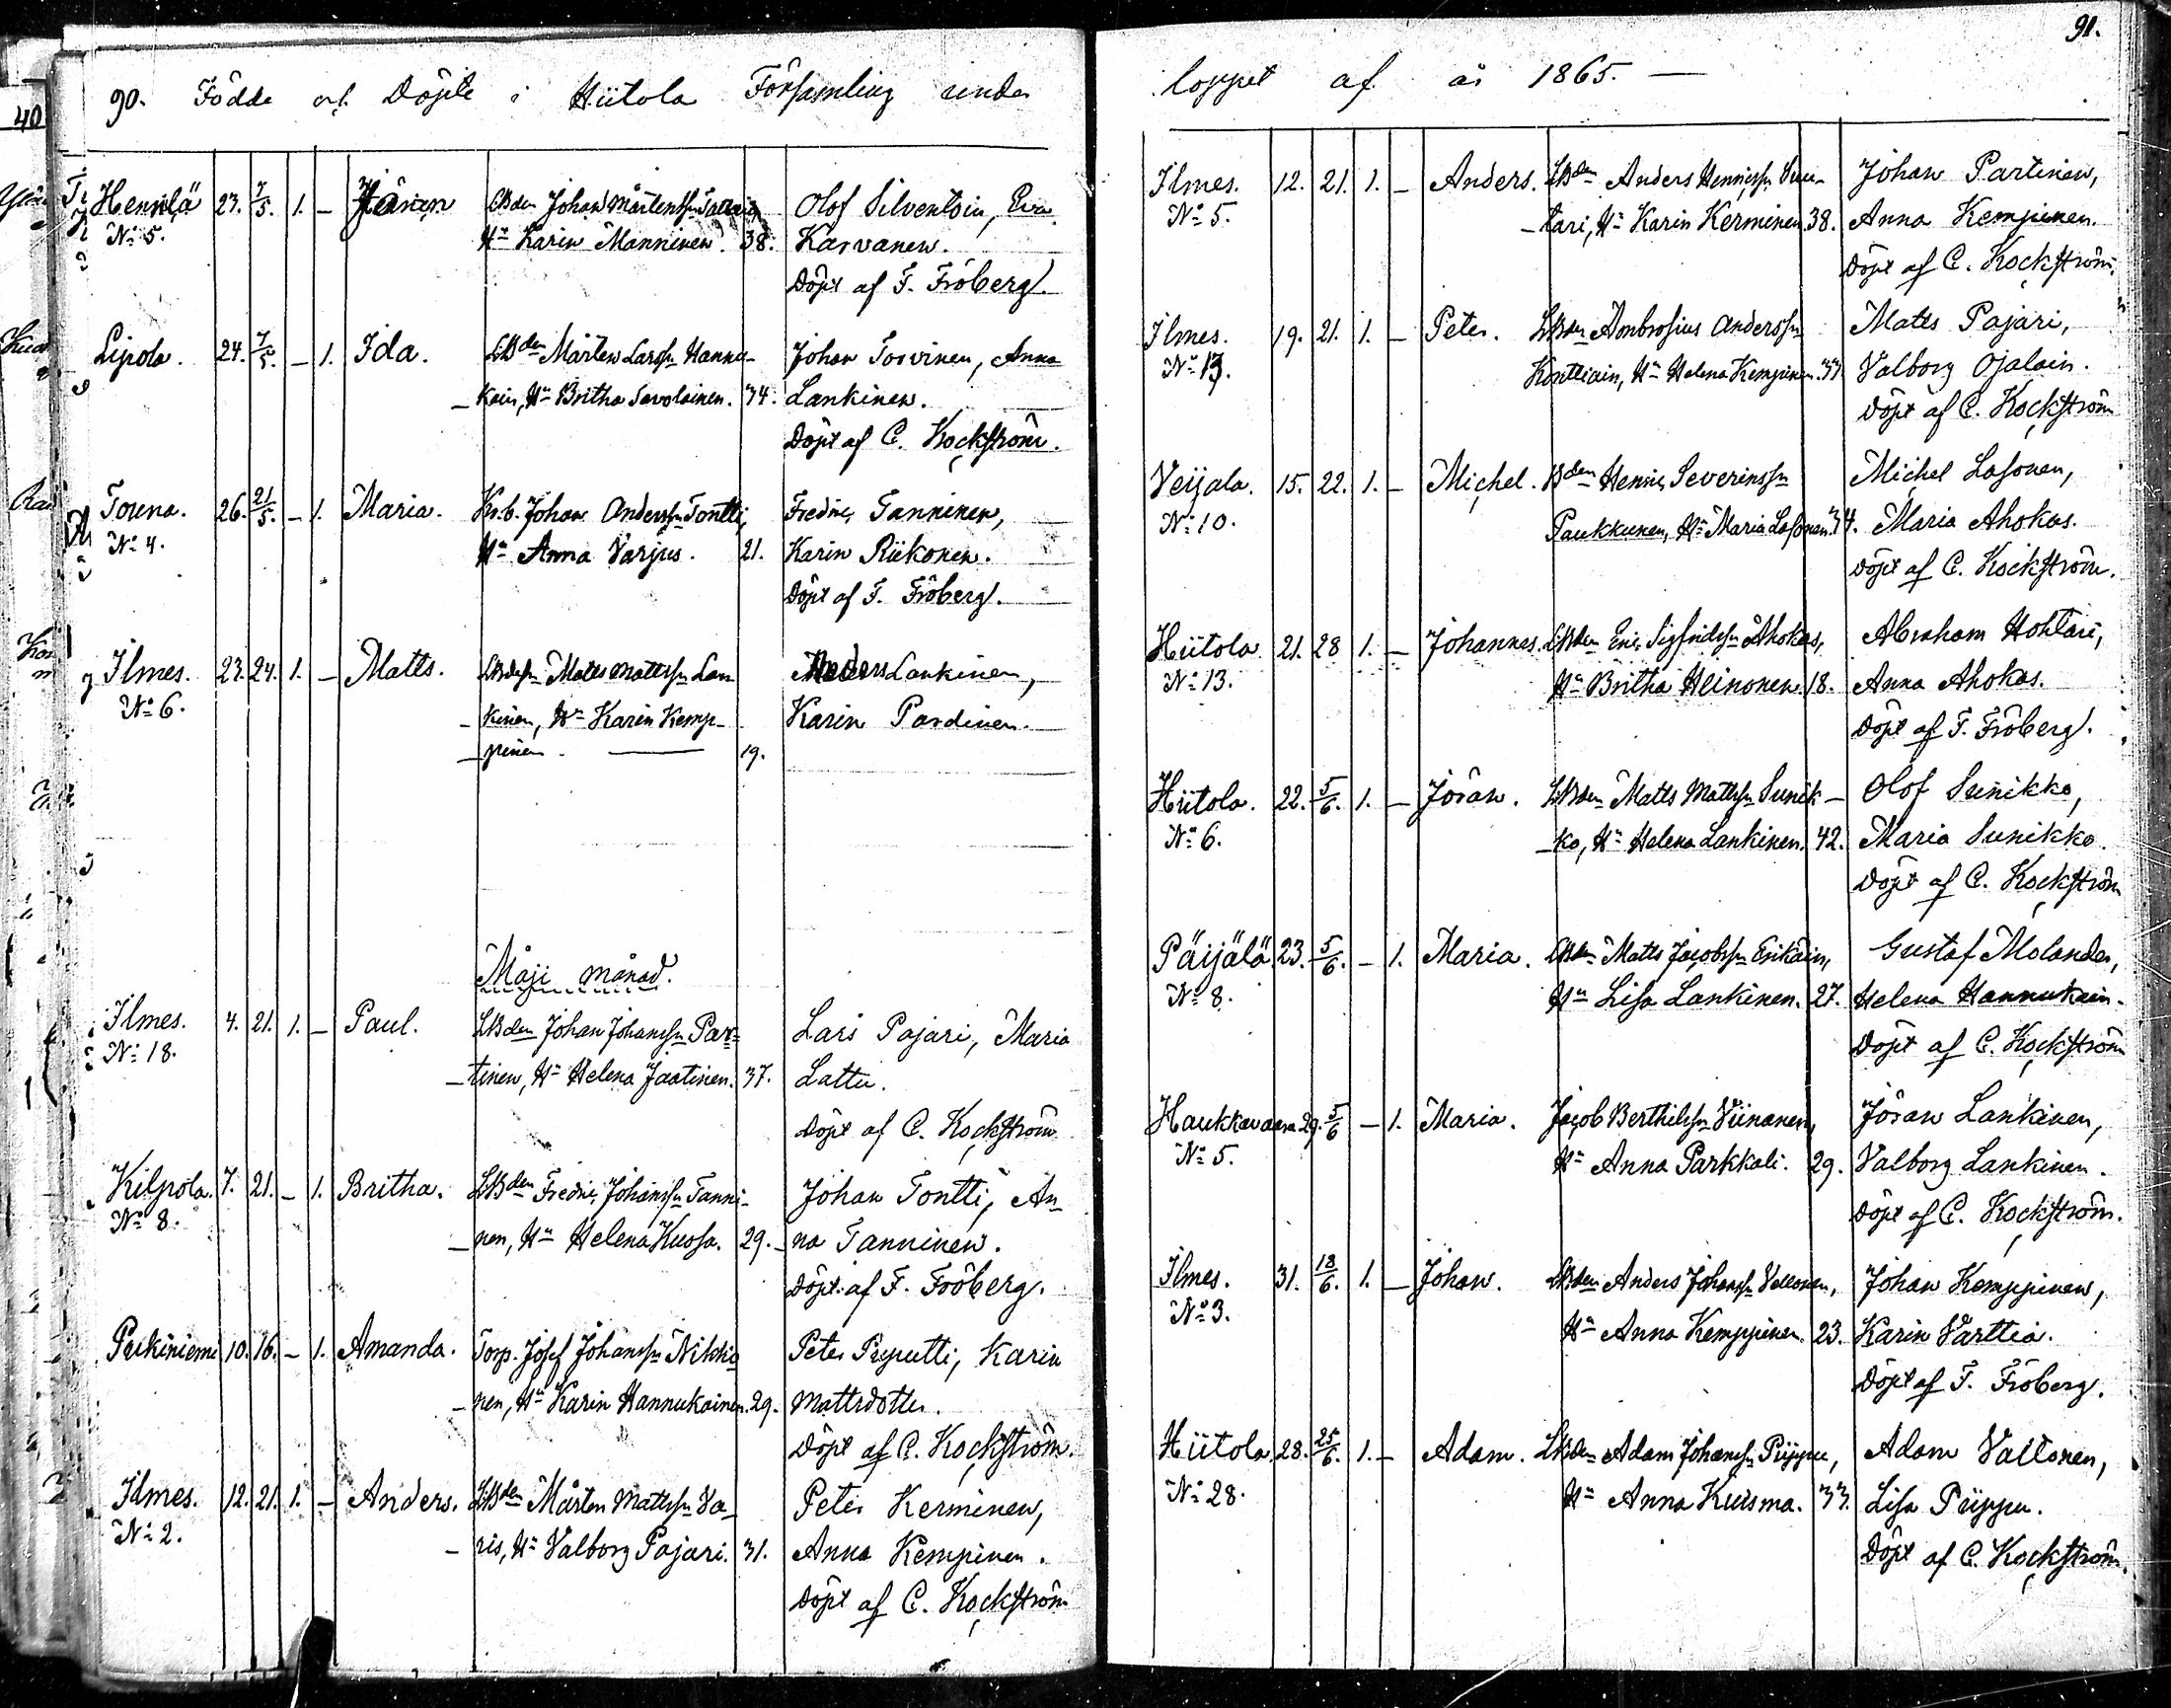 90. Födde och Döpte i Hiitola Församling under
Hennilä 23. 7/5. 1. – Jöran LBden Johan Mårtenssn
No 5. Hu Karin Manninen. 38.
Olof Silventoin, Eva
Karvanen.
Döpt af F. Fröberg.
Lepola. 24. 7/5. – 1. Ida. LBden Mårten Larssn Hannu-
kain, Hu Britha Savolainen. 34.
Johan Torvinen, Anna
Lankinen.
Döpt af C. Kockström.
Touna. 26. 21/5. – 1. Maria. Kr.b. Johan Anderssn Tontti,
No 4. Hu Anna Varjus. 21.
Fredric Tanninen,
Karin Riikonen.
Döpt af F. Fröberg.
Ilmes. 23. 24. 1. – Matts. Matts Mattssn Lan
No 6. kinen, Hu Karin Kemp-
pinen – 19.
Anders Lankinen,
Karin Pardinen.
Maji månad.
Ilmes. 4. 21. 1. – Paul. LBden Johan Johanssn Par=
No 18. tinen, Hu Helena Jaatinen. 37.
Lars Pajari, Maria
Lattu.
Döpt af C. Kockström
Kilpola. 7. 21. – 1. Britha. LBden Fredric Johanssn Tanni-
No 8. nen, Hu Helena Kuosa. 29.
Johan Tontti, An
na Tanninen.
Döpt af F. Fröberg.
Pukiniemi 10. 16. – 1. Amanda. Torp. Josef Johanssn Nikkia
nen, Hu Karin Hannukainen. 29.
Peter Pyputti, Karin
Mattsdotter.
Döpt af C. Kockström.
Ilmes. 12. 21. 1. – Anders. LBden Mårten Mattssn Va
No 2. ris, Hu Valborg Pajari. 31.
Peter Kerminen,
Anna Kempinen.
Döpt af C. Kockström
91.
loppet af år 1865. –
Ilmes. 12. 21. 1. – Anders. LBden Anders Henricssn Suu-
No 5. tari, Hu Karin Kerminen. 38.
Johan Partinen,
Anna Kempinen.
Döpt af C. Kockström.
Ilmes. 19. 21. 1. – Peter. LBden Ambrosius Anderssn
No 13. Konttiain, Hu Helena Kempinen. 33.
Matts Pajari,
Valborg Ojalain.
Döpt af C. Kockström
Veijala. 15. 22. 1. – Michel. Bden Henric Severinssn
No 10. Paukkunen, Hu Maria Lasonen. 34.
Michel Lasonen,
Maria Ahokas.
Döpt af C. Kockström.
Hiitola. 21. 28 1. – Johannes. LBden Eric Sigfridssn Ahokas,
No 13. Hu Britha Heinonen. 18.
Abraham Hohtari,
Anna Ahokas.
Döpt af F. Fröberg.
Hiitola. 22. 5/6. 1. – Jöran. LBden Matts Mattssn Sunik-
No 6. ko, Hu Helena Lankinen. 42.
Olof Sunikka,
Maria Sunikko.
Döpt af C. Kockström
Päijälä 23. 5/6. – 1. Maria. LBden Matts Jacobssn Erikäin,
No 8. Hu Lisa Lankinen. 27.
Gustaf Molander,
Helena Hannukain.
Döpt af C. Kockström
Haukkavaara 29. 5/6 – 1. Maria. Jacob Berthilssn Viinanen,
No 5. Hu Anna Parkkali. 29.
Jöran Lankinen,
Valborg Lankinen.
Döpt af C. Kockström.
Ilmes. 31. 18/6. 1. – Johan. LBden Anders Johanssn Vellonen,
No 3. Hu Anna Kemppinen. 23.
Johan Kemppinen,
Karin Varttia.
Döpt af F. Fröberg.
Hiitola 28. 25/6. 1. – Adam. LBden Adam Johanssn Piippu,
No 28. Hu Anna Kuisma. 33.
Adam Valtonen,
Lisa Piippu.
Döpt af C. Kockström.